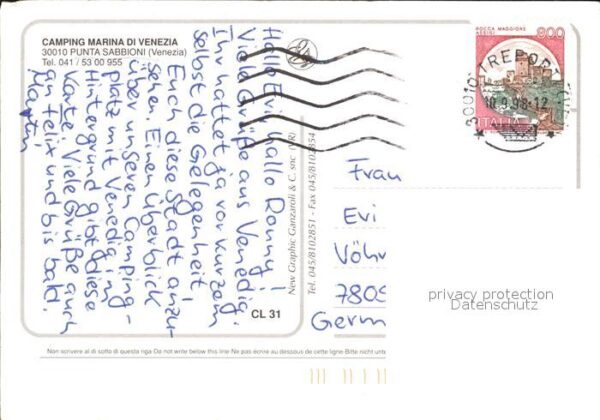 CAMPING MARINA DI VENEZIA
30010 PUNTA SABBIONI (Venezia)
Tel. 041 / 53 00 955
Hallo Evi, hallo Ronny!
Viele Grüße aus Venedig.
Ihr hattet ja vor kurzem
selbst die Gelegenheit
Euch diese Stadt anzu-
sehen. Einen Überblick
über unseren Camping-
platz mit Venedig im
Hintergrund gibt diese
Karte. Viele Grüße auch
an Felix und bis bald.
Martin
CL 31
New Graphic Ganzaroli & C. snc (VR)
Tel. 045/8102851 - Fax 045/8102854
ROCCA MAGGIORE
ASSISI
800
ITALIA
30010 TREPOR
10.9.98-12
Frau
Evi
Vöhr
7809
Germ
privacy protection
Datenschutz
Non scrivere al di sotto di questa riga Do not write below this line Ne pas écrire au dessous de cette ligne-Bitte nicht unt